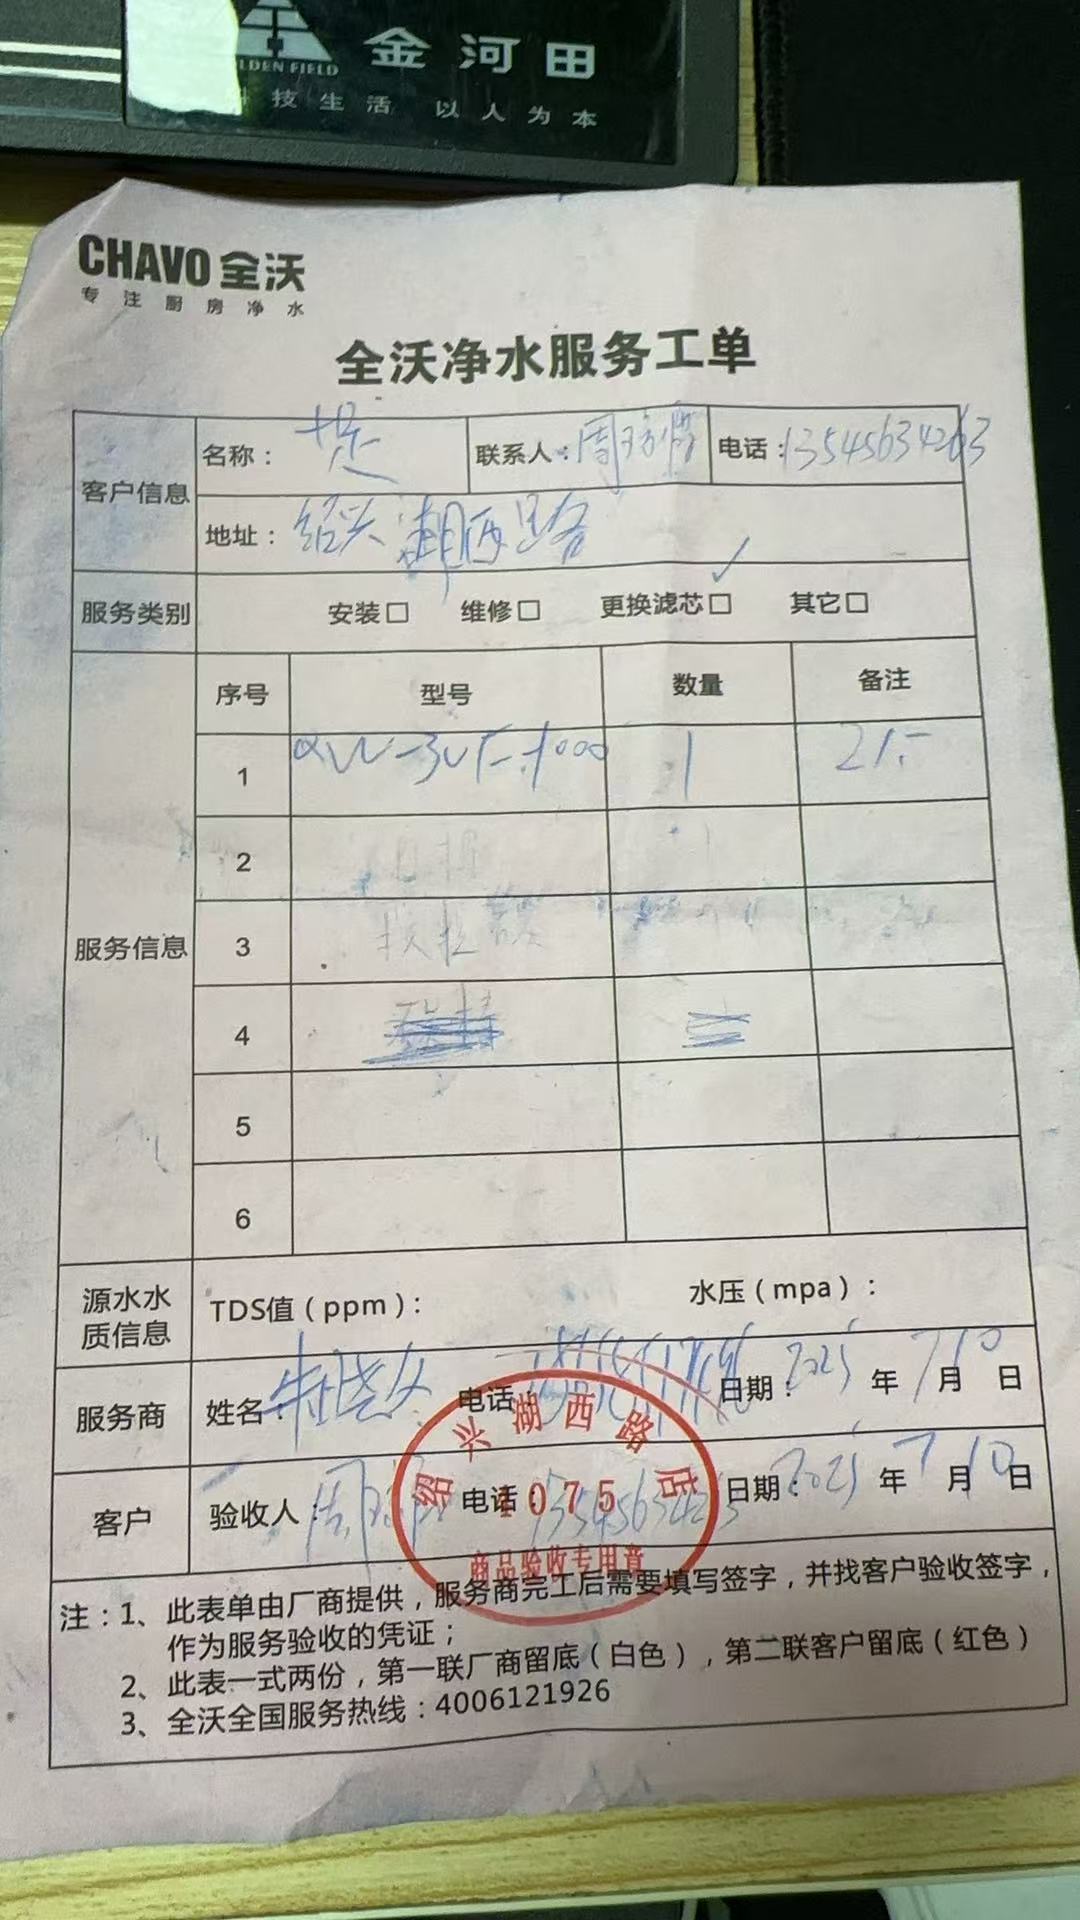 金河田
GOLDEN FIELD
科技生活 以人为本
CHAVO 全沃
专注厨房净水
全沃净水服务工单
客户信息
名称：
联系人：周
电话：13545634263
地址：绍兴湖西路
服务类别
安装□ 维修□ 更换滤芯□ ✓ 其它□
服务信息
序号 型号 数量 备注
1 QW-3UF-1000 1 21.-
2
3
4
5
6
源水水质信息
TDS值（ppm）： 水压（mpa）：
服务商
姓名：朱晓 电话： 日期：2025年7月10日
客户
验收人：周 电话：13545634263 日期：2025年7月10日
绍兴湖西路店
1075
商品验收专用章
注：1、此表单由厂商提供，服务商完工后需要填写签字，并找客户验收签字，
作为服务验收的凭证；
2、此表一式两份，第一联厂商留底（白色），第二联客户留底（红色）
3、全沃全国服务热线：4006121926